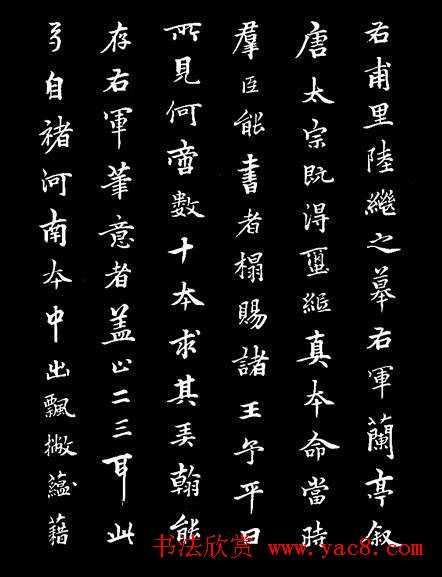 右甫里陸繼之摹右軍蘭亭叙
唐太宗既得璽紙真本命當時
羣臣能書者搨賜諸王予平日
所見何啻數十本求其弄翰能
存右軍筆意者盖止二三耳此
弓自褚河南本中出飄撇蘊藉
书法欣赏 www.yac8.com